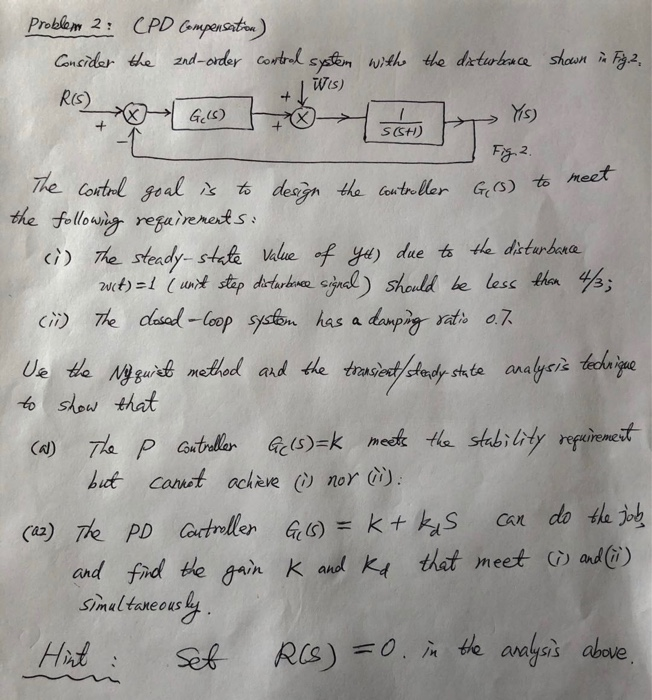 Problem 2: (PD Compensation)
Consider the 2nd-order control system withe the disturbance shown in Fig.2.
R(s) + − Gc(s) + + W(s) 1/s(s+1) Y(s)
Fig. 2.
The control goal is to design the controller Gc(s) to meet
the following requirements:
(i) The steady-state value of y(t) due to the disturbance
w(t)=1 (unit step disturbance signal) should be less than 4/3;
(ii) The closed-loop system has a damping ratio 0.7.
Use the Nyquist method and the transient/steady-state analysis technique
to show that
(a1) The P controller Gc(s)=K meets the stability requirement
but cannot achieve (i) nor (ii).
(a2) The PD Controller Gc(s) = K + kds can do the job,
and find the gain K and Kd that meet (i) and (ii)
simultaneously.
Hint: Set R(s) = 0. in the analysis above.